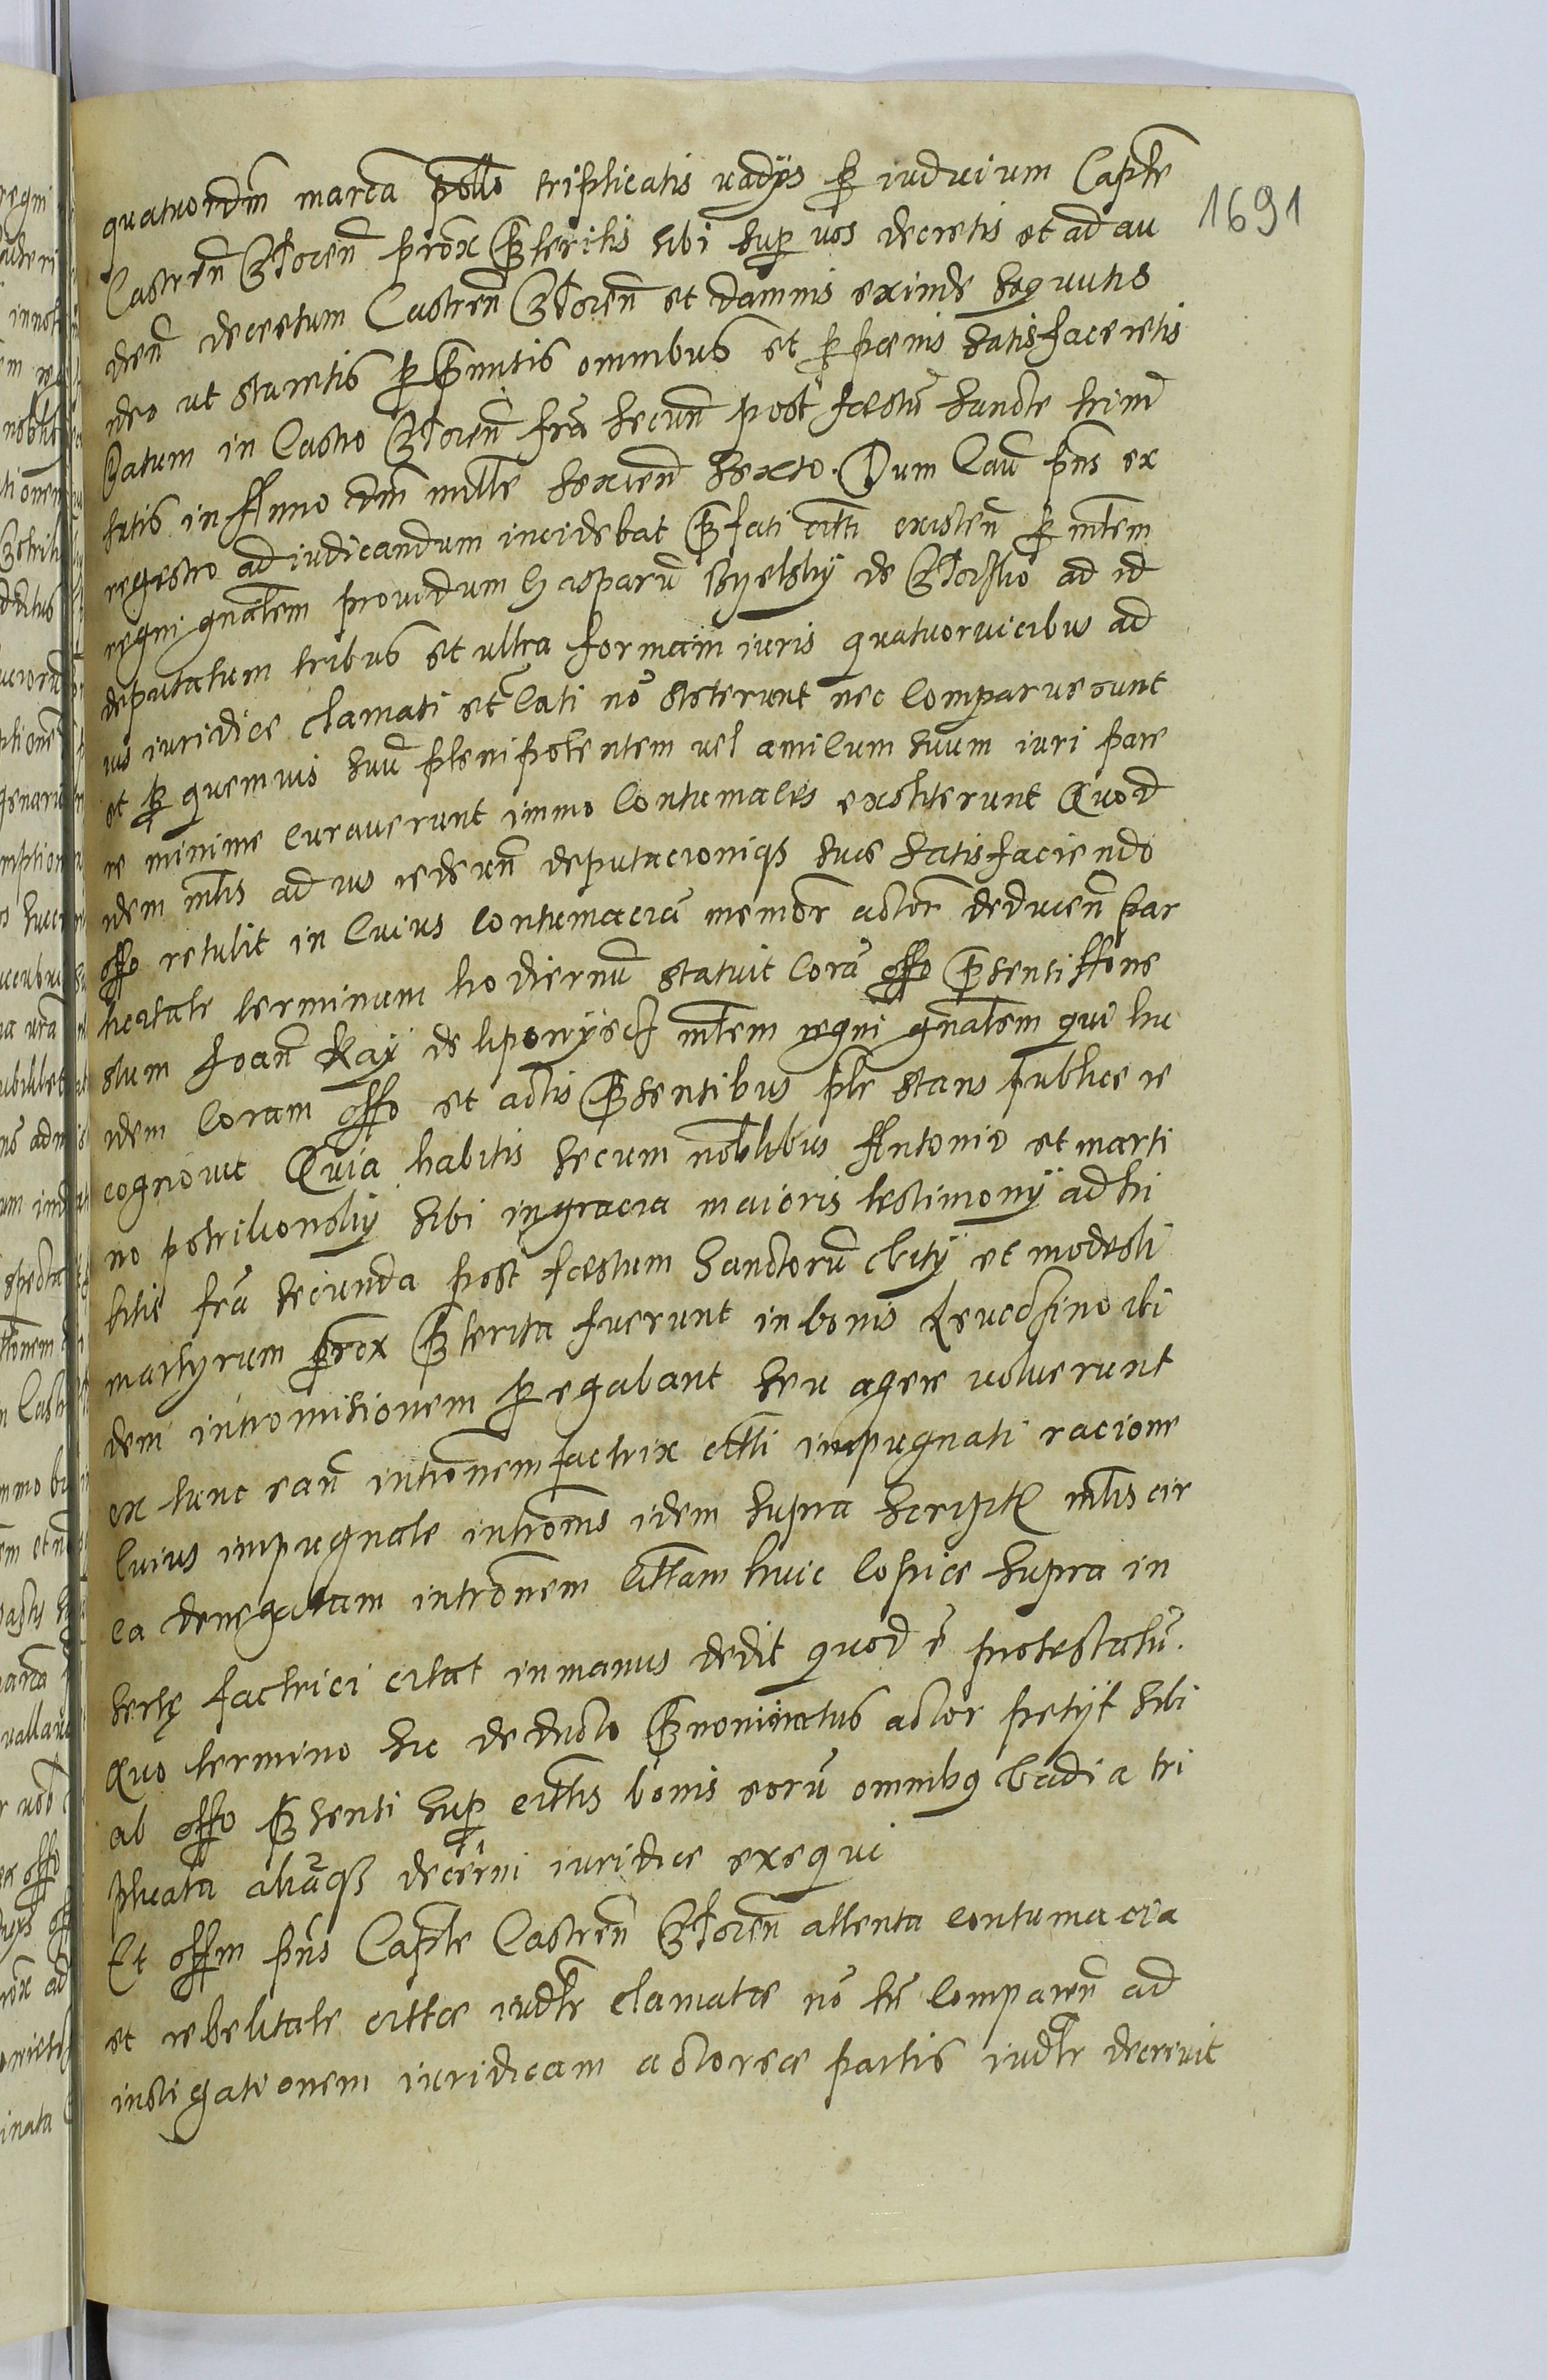 1691
quatuordm marca pollo triplicatis vadÿs p iudicium Capte
Castren Ptoren prox pteritis sibi sup vos decretis et ad au
dien decretum Castren Ptoren et damnis exinde sequutis
ideo ut staretis p pmitis omnibus et p poenis satisfaceretis
Datum in Castro Ptoren fria secun post festu sancte trini
tatis in Anno dni mille sexcen sexto. Dum Cau pns ex
regestro ad iudicandum incidebat pfati citti existen p mtem
regni gnalem providum Casparu Byelsky de Ptorko ad id
deputatum tribus et ultra formam iuris quatuor vicibus ad
ius iuridice clamati et clati no steterunt nec comparuerunt
et p quemvis suu plenipotentem vel amicum suum iuri pare
re minime curaverunt immo contumaces exstiterunt Quod
idem mtis ad ius redeun deputacioniqs sue satisfaciendo
offo retulit in cuius contumacia memor actor deducen par
hertate terminum hodiernu statuit cora offo psenti hone
stum Joan Kaÿ de liponyecz mtem regni gnalem qui hu
idem coram offo et actis psentibus plr stans publice re
cognovit Quia habitis secum noblibus Antonio et marti
no pstrikonsky sibi in gracia maioris testimonÿ ad hi
bitis fria secunda post festum Sanctorũ vitÿ et modesti
martyrum prox pterita fuerunt in bonis ibi
dem intromisionem peregabant seu agere voluerunt
ex tunc ean intronem factrix citti impugnati racione
cuius impugnate introms idem supra scriptus mtis cir
ca denegatam intronem cittam huic copice supra in
serte factrici citat in manus dedit quod e protestatu.
Quo termino sic deducto pnominatus actor petÿt sibi
ab offo psenti sup cittis bonis eoru omnibus vadia tri
plicata aliaqs decerni iuridice exequi
Et offm pns Capte Castren Ptoren attenta contumacia
et rebelitate citte iudlr clamate no tn comparen ad
instigationem iuridicam actoree partis iudlr decrevit